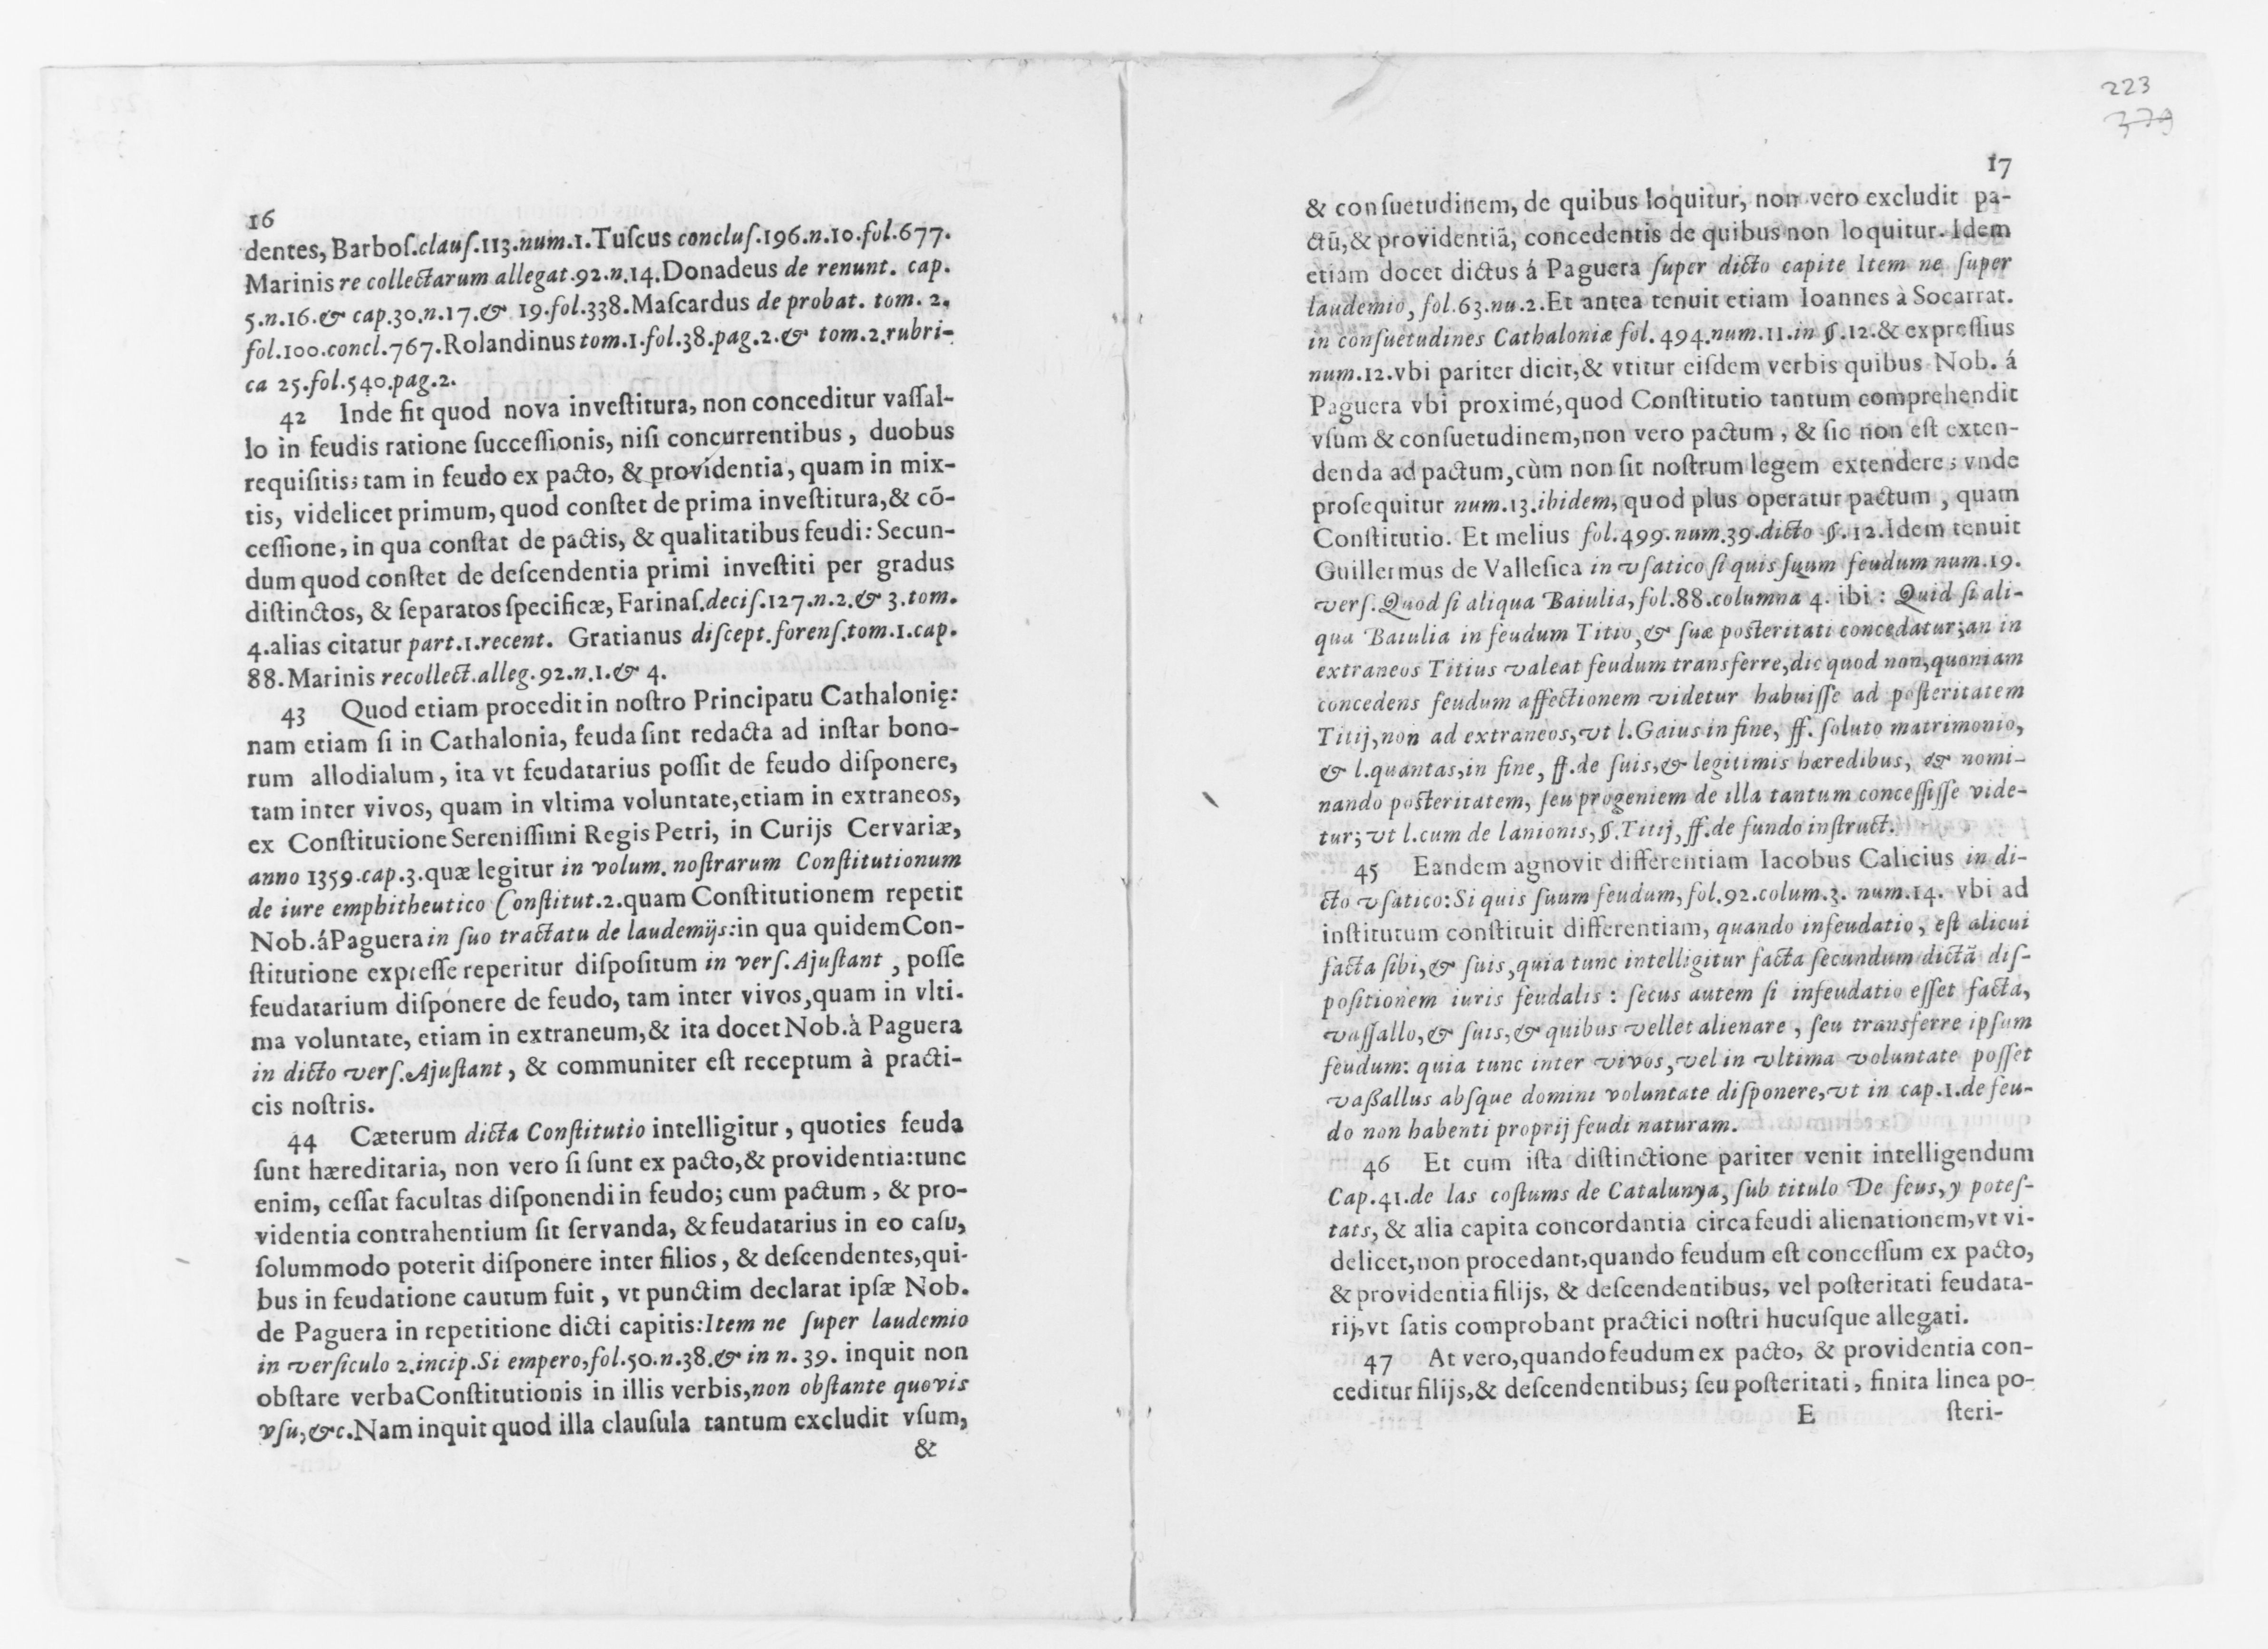 16
dentes, Barboſ.clauſ.113.num.1.Tuſcus concluſ.196.n.10.fol.677.
Marinis re collectarum allegat.92.n.14.Donadeus de renunt. cap.
5.n.16.& cap.30.n.17.& 19.fol.338.Maſcardus de probat. tom. 2.
fol.100.concl.767.Rolandinus tom.1.fol.38.pag.2.& tom.2.rubri-
ca 25.fol.540.pag.2.
42 Inde fit quod nova inveſtitura, non conceditur vaſſal-
lo in feudis ratione ſucceſſionis, niſi concurrentibus, duobus
requiſitis; tam in feudo ex pacto, & providentia, quam in mix-
tis, videlicet primum, quod conſtet de prima inveſtitura,& cõ-
ceſſione, in qua conſtat de pactis, & qualitatibus feudi: Secun-
dum quod conſtet de deſcendentia primi inveſtiti per gradus
diſtinctos, & ſeparatos ſpecificæ, Farinaſ.deciſ.127.n.2.& 3.tom.
4.alias citatur part.1.recent. Gratianus diſcept.forenſ.tom.1.cap.
88.Marinis recollect.alleg.92.n.1.& 4.
43 Quod etiam procedit in noſtro Principatu Cathalonię:
nam etiam ſi in Cathalonia, feuda ſint redacta ad inſtar bono-
rum allodialum, ita vt feudatarius poſſit de feudo diſponere,
tam inter vivos, quam in vltima voluntate,etiam in extraneos,
ex Conſtitutione Sereniſſimi Regis Petri, in Curijs Cervariæ,
anno 1359.cap.3.quæ legitur in volum. noſtrarum Conſtitutionum
de iure emphitheutico Conſtitut.2.quam Conſtitutionem repetit
Nob.áPaguera in ſuo tractatu de laudemijs:in qua quidem Con-
ſtitutione expreſſe reperitur diſpoſitum in verſ.Ajuſtant, poſſe
feudatarium diſponere de feudo, tam inter vivos,quam in vlti-
ma voluntate, etiam in extraneum,& ita docet Nob.à Paguera
in dicto verſ.Ajuſtant, & communiter eſt receptum à practi-
cis noſtris.
44 Cæterum dicta Conſtitutio intelligitur, quoties feuda
ſunt hæreditaria, non vero ſi ſunt ex pacto,& providentia:tunc
enim, ceſſat facultas diſponendi in feudo; cum pactum, & pro-
videntia contrahentium ſit ſervanda, & feudatarius in eo caſu,
ſolummodo poterit diſponere inter filios, & deſcendentes,qui-
bus in feudatione cautum fuit, vt punctim declarat ipſæ Nob.
de Paguera in repetitione dicti capitis:Item ne ſuper laudemio
in verſiculo 2.incip.Si empero,fol.50.n.38.& in n. 39. inquit non
obſtare verbaConſtitutionis in illis verbis,non obſtante quovis
vſu,&c.Nam inquit quod illa clauſula tantum excludit vſum,
&
223
379
17
& conſuetudinem, de quibus loquitur, non vero excludit pa-
ctũ,& providentiã, concedentis de quibus non loquitur. Idem
etiam docet dictus á Paguera ſuper dicto capite Item ne ſuper
laudemio, fol.63.nu.2.Et antea tenuit etiam Ioannes à Socarrat.
in conſuetudines Cathaloniæ fol. 494.num.11.in §.12.& expreſſius
num.12.vbi pariter dicit,& vtitur eiſdem verbis quibus Nob. á
Paguera vbi proximé,quod Conſtitutio tantum comprehendit
vſum & conſuetudinem,non vero pactum, & ſic non eſt exten-
denda ad pactum,cùm non ſit noſtrum legem extendere; vnde
proſequitur num.13.ibidem, quod plus operatur pactum, quam
Conſtitutio. Et melius fol.499.num.39.dicto §.12.Idem tenuit
Guillermus de Valleſica in vſatico ſi quis ſuum feudum num.19.
verſ.Quod ſi aliqua Baiulia,fol.88.columna 4. ibi: Quid ſi ali-
qua Baiulia in feudum Titio,& ſuæ poſteritati concedatur;an in
extraneos Titius valeat feudum transferre,dic quod non,quoniam
concedens feudum affectionem videtur habuiſſe ad poſteritatem
Titij,non ad extraneos,vt l.Gaius in fine, ff. ſoluto matrimonio,
& l.quantas,in fine, ff.de ſuis,& legitimis hæredibus, & nomi-
nando poſteritatem, ſeu progeniem de illa tantum conceſſiſſe vide-
tur; vt l.cum de lanionis,§.Titij, ff.de fundo inſtruct.
45 Eandem agnovit differentiam Iacobus Calicius in di-
cto vſatico:Si quis ſuum feudum, fol.92.colum.3. num.14. vbi ad
inſtitutum conſtituit differentiam, quando infeudatio, eſt alicui
facta ſibi,& ſuis,quia tunc intelligitur facta ſecundum dictã diſ-
poſitionem iuris feudalis: ſecus autem ſi infeudatio eſſet facta,
vaſſallo,& ſuis,& quibus vellet alienare, ſeu transferre ipſum
feudum: quia tunc inter vivos,vel in vltima voluntate poſſet
vaßallus abſque domini voluntate diſponere,vt in cap.1.de feu-
do non habenti proprij feudi naturam.
46 Et cum iſta diſtinctione pariter venit intelligendum
Cap.41.de las coſtums de Catalunya, ſub titulo De feus,y poteſ-
tats, & alia capita concordantia circa feudi alienationem,vt vi-
delicet,non procedant,quando feudum eſt conceſſum ex pacto,
& providentia filijs, & deſcendentibus, vel poſteritati feudata-
rij,vt ſatis comprobant practici noſtri hucuſque allegati.
47 At vero,quando feudum ex pacto, & providentia con-
ceditur filijs,& deſcendentibus; ſeu poſteritati, finita linea po-
E ſteri-